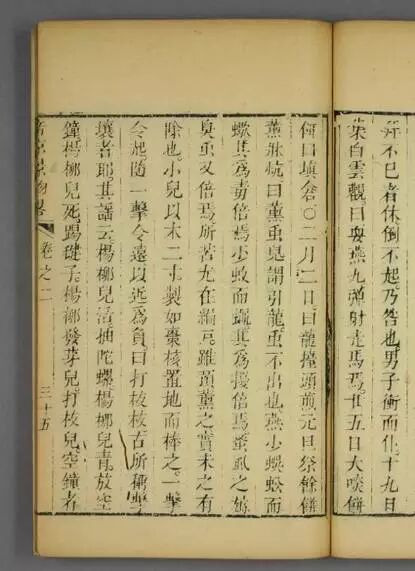 并不已者休倒不起乃咎也男子衝而化十九日
集白雲觀曰耍燕九彈射走馬焉廿五日大啖餅
餌曰填倉○二月二日曰龍擡頭煎元旦祭餘餅
薰牀炕曰薰蟲兒謂引龍蟲不出也燕少蜈蚣而
蠍其爲毒倍焉少蚊而蠅其爲擾倍焉蚤虱之屬
臭蟲又倍焉所苦尤在編戶雖預薰之實未之有
除也小兒以木二寸製如棗核置地而棒之一擊
令起隨一擊令遠以近爲負曰打柭柭古所稱擊
壤者耶其謠云楊柳兒活抽陀螺楊柳兒青放空
鐘楊柳兒死踢毽子楊柳發芽兒打柭兒空鐘者
帝京景物畧 卷之二 三十五